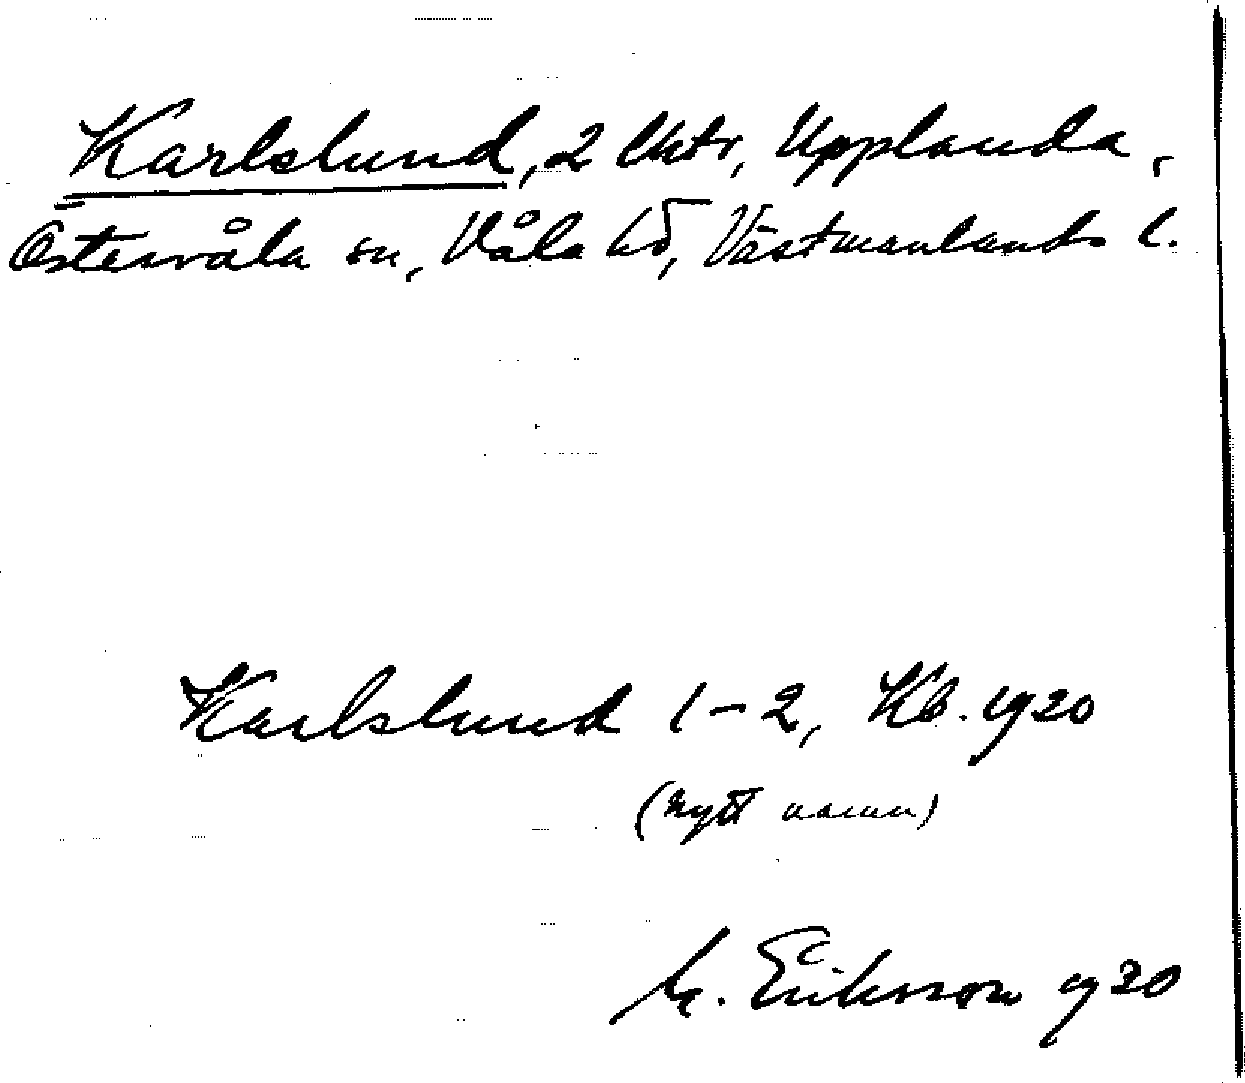 Karlslund, 2 lhtr, Upplanda,
Östervåla sn, Våla hd, Västmanlands l.
Karlslund 1-2, Kb. 1920
(nytt namn)
M. Eriksson 1930